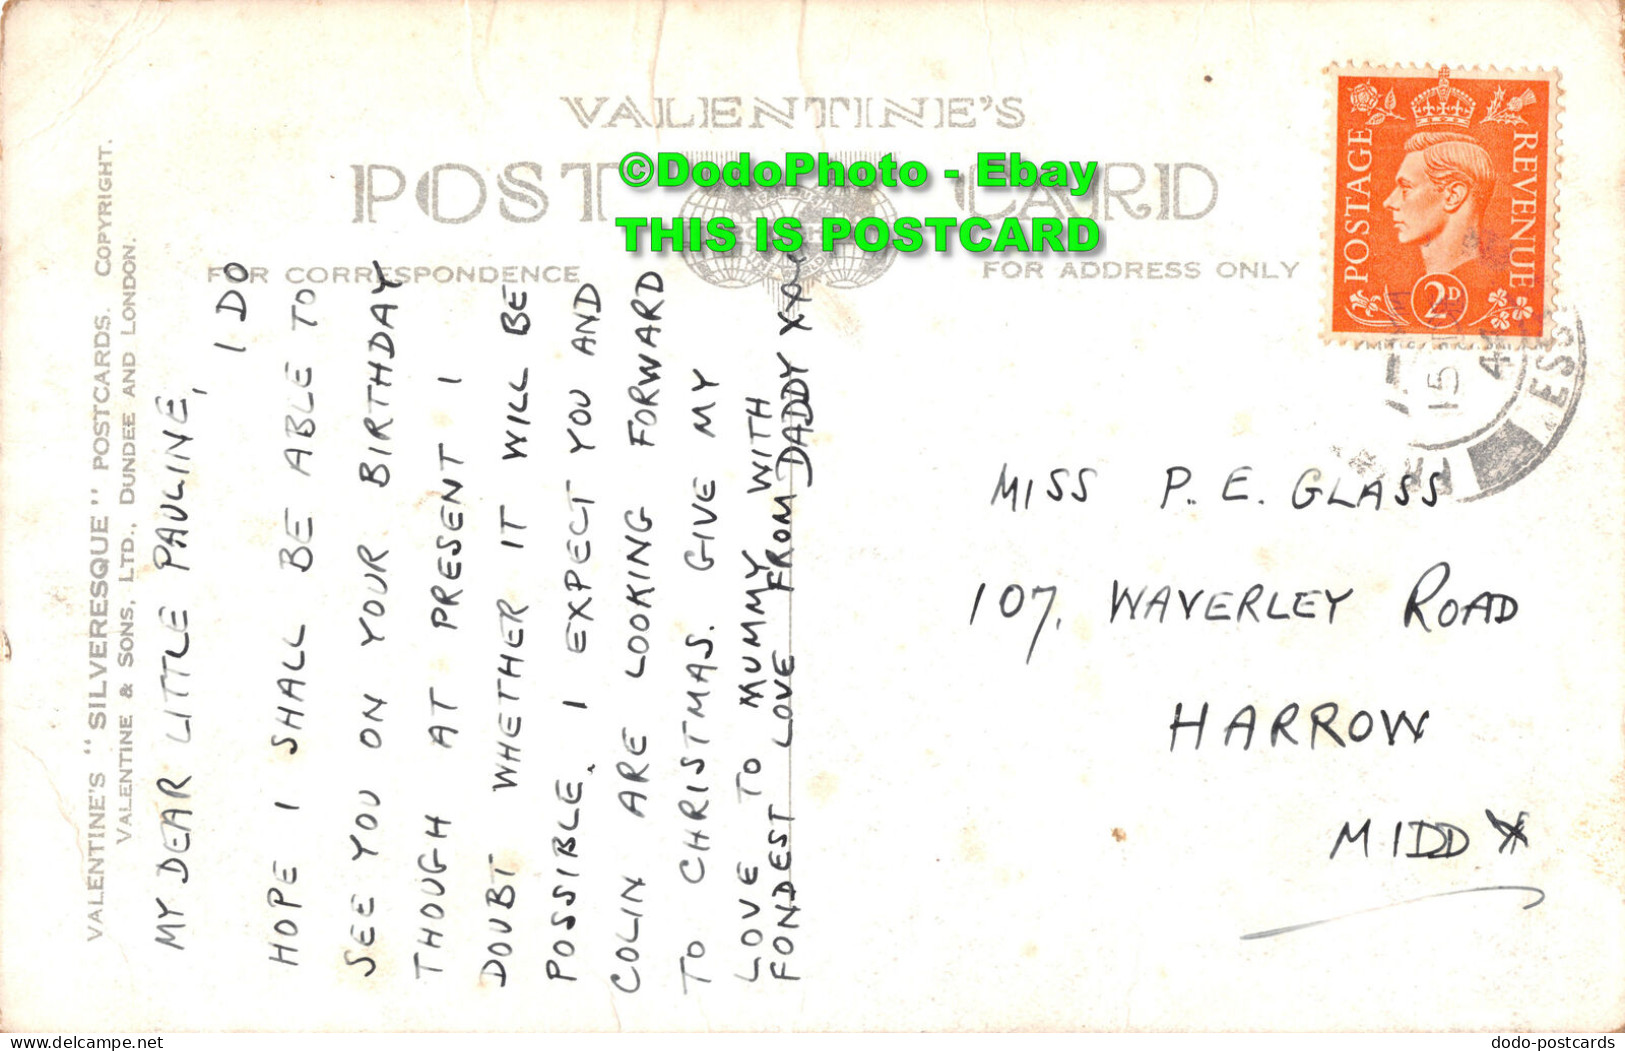 VALENTINE'S
POST CARD
©DodoPhoto - Ebay
THIS IS POSTCARD
FOR CORRESPONDENCE
FOR ADDRESS ONLY
VALENTINE'S "SILVERESQUE" POSTCARDS. COPYRIGHT.
VALENTINE & SONS, LTD., DUNDEE AND LONDON.
MY DEAR LITTLE PAULINE,
I DO
HOPE I SHALL BE ABLE TO
SEE YOU ON YOUR BIRTHDAY
THOUGH AT PRESENT I
DOUBT WHETHER IT WILL BE
POSSIBLE. I EXPECT YOU AND
COLIN ARE LOOKING FORWARD
TO CHRISTMAS. GIVE MY
LOVE TO MUMMY WITH
FONDEST LOVE FROM DADDY xxx
POSTAGE
REVENUE
2D
15
MISS P. E. GLASS
107, WAVERLEY ROAD
HARROW
MIDDX
www.delcampe.net
dodo-postcards